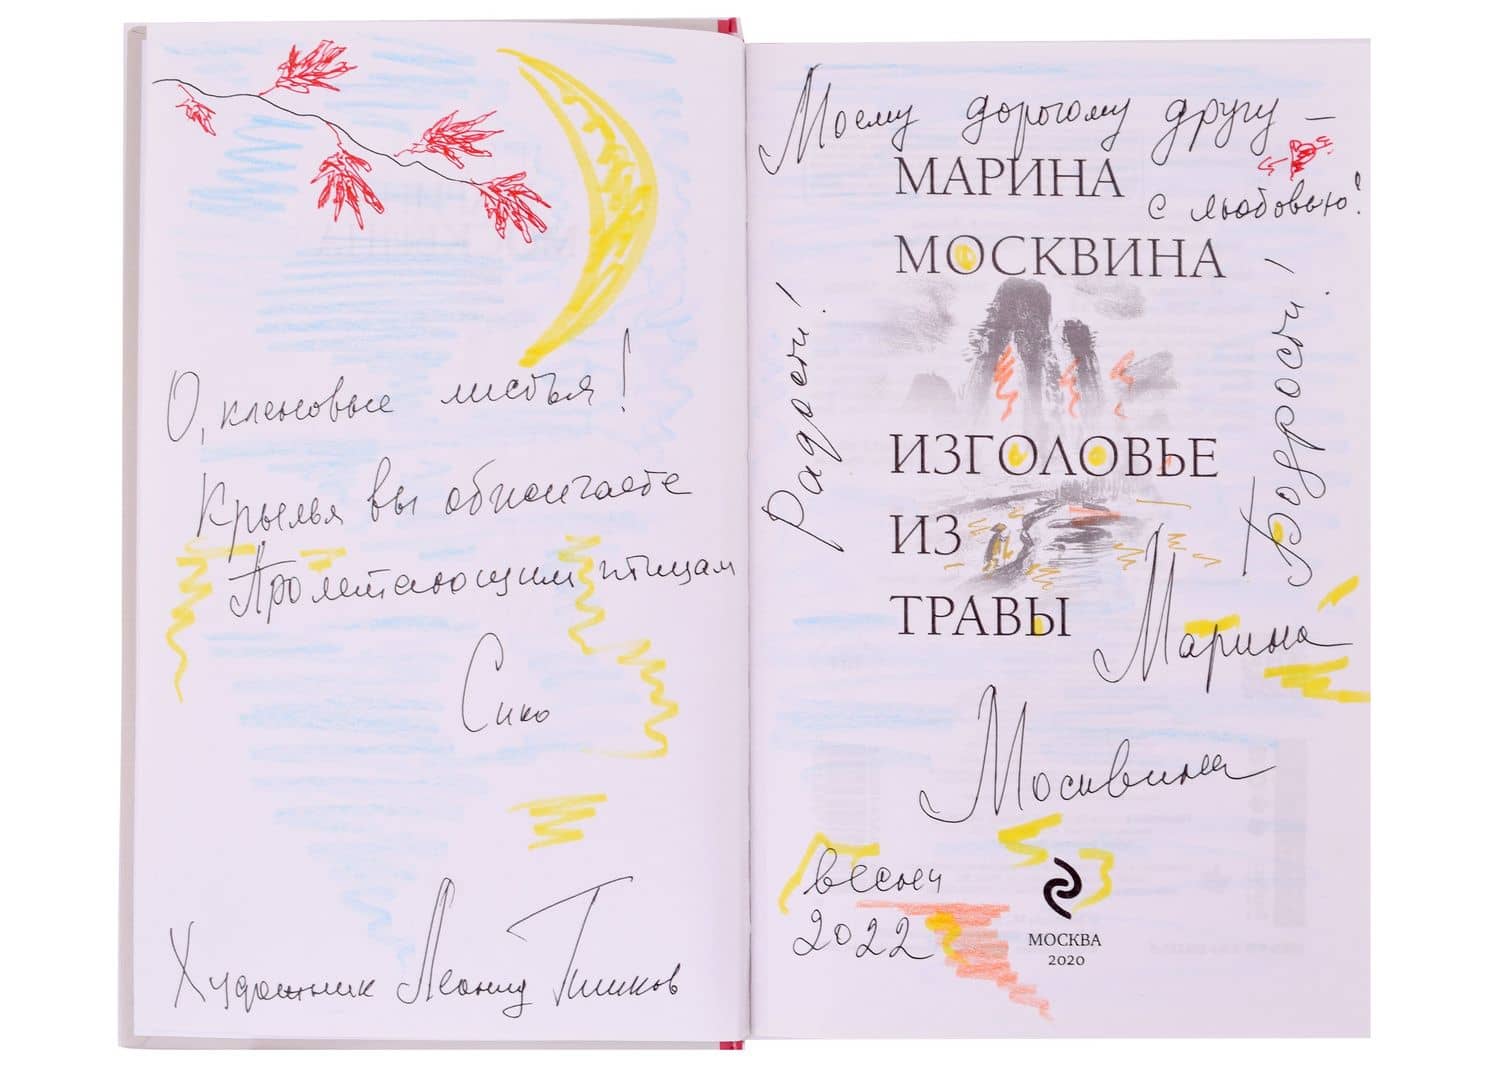 О, кленовые листья!
Крылья вы обжигаете
Пролетающим птицам
Сико
Художник Леонид Тишков
Моему дорогому другу –
МАРИНА
с любовью!
МОСКВИНА
Радости!
Бодрости!
ИЗГОЛОВЬЕ
ИЗ
ТРАВЫ
Марина
Москвина
весной
2022
МОСКВА
2020